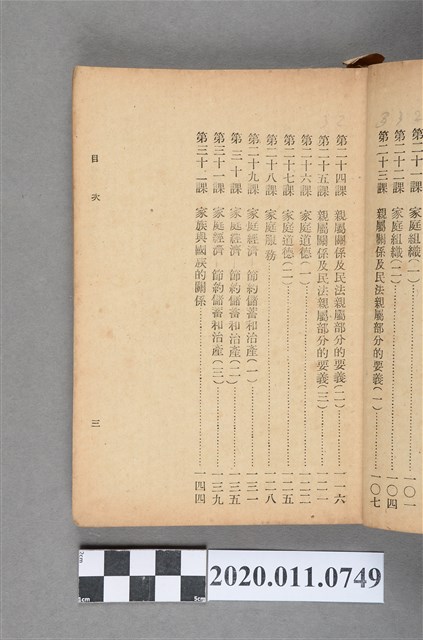 第二十一課 家庭組織(一)……一〇一
第二十二課 家庭組織(二)……一〇四
第二十三課 親屬關係及民法親屬部分的要義(一)……一〇七
第二十四課 親屬關係及民法親屬部分的要義(二)……一一六
第二十五課 親屬關係及民法親屬部分的要義(三)……一二一
第二十六課 家庭道德(一)……一二二
第二十七課 家庭道德(二)……一二五
第二十八課 家庭服務……一二八
第二十九課 家庭經濟 節約儲蓄和治產(一)……一三一
第三十課 家庭經濟 節約儲蓄和治產(二)……一三五
第三十一課 家庭經濟 節約儲蓄和治產(三)……一三九
第三十二課 家族與國族的關係……一四四
目次 三
2020.011.0749
1cm
5cm